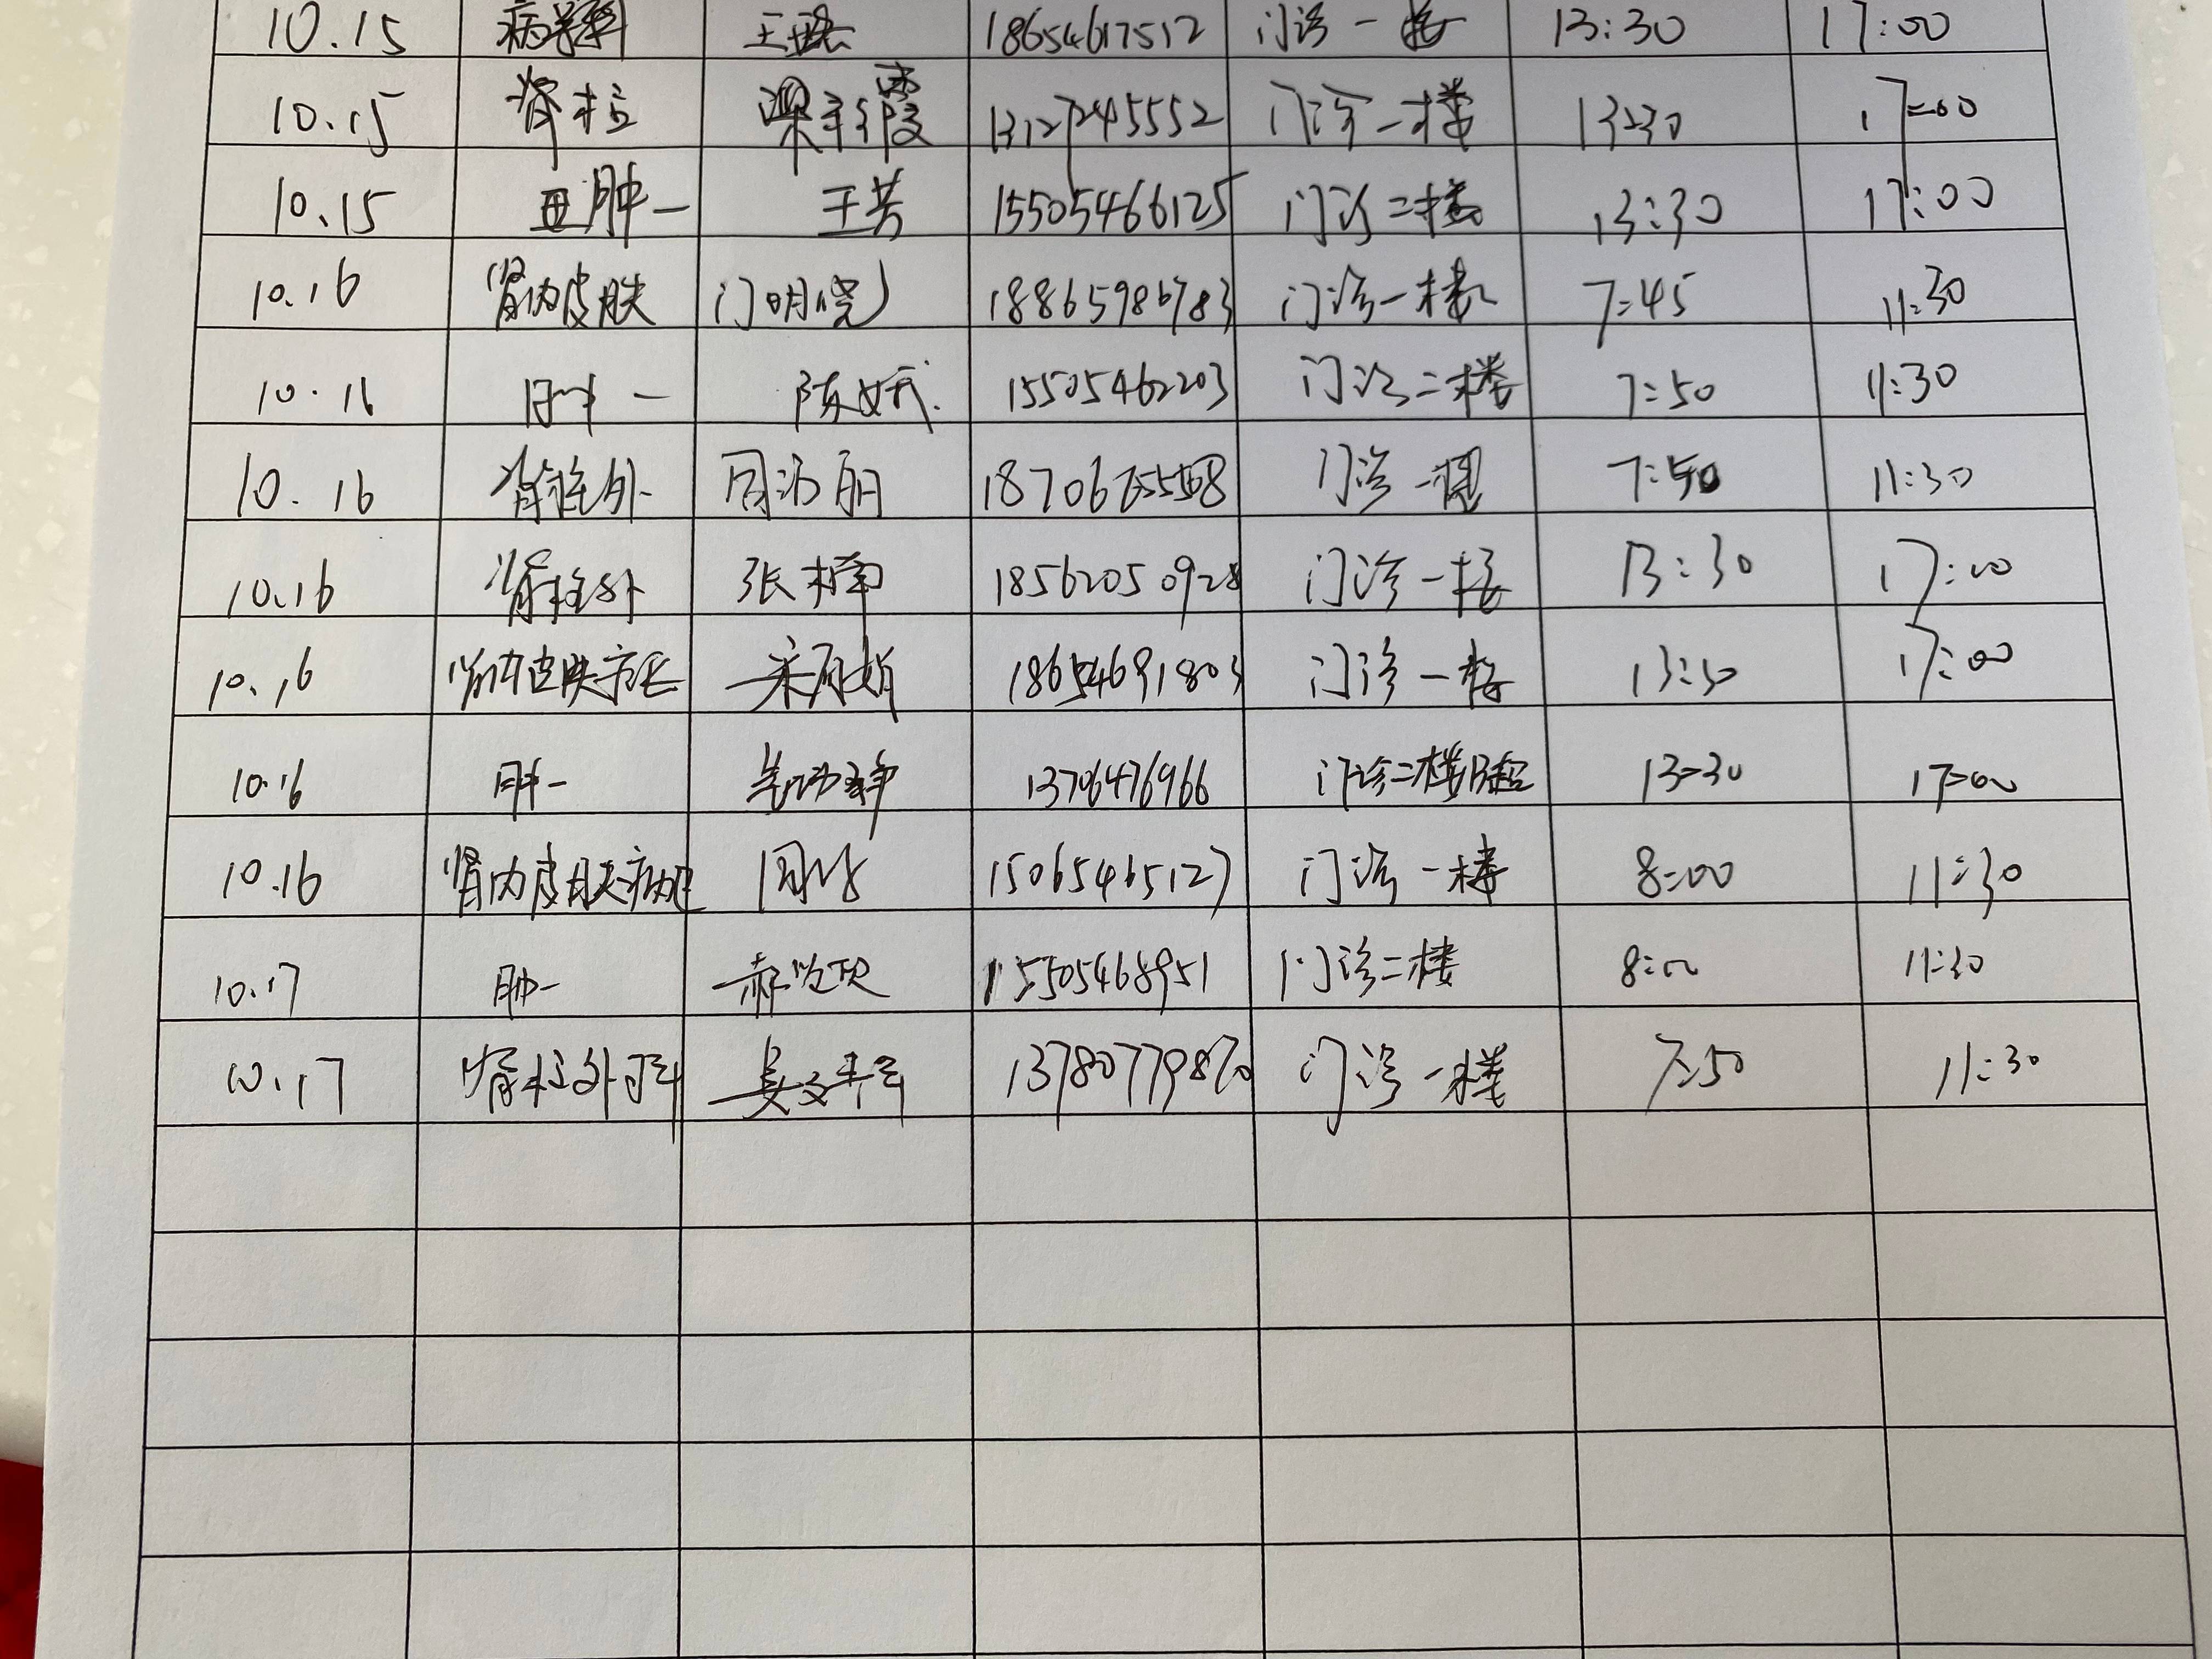 10.15 病案科 王 18654617512 门诊一楼 13:30 17:00
10.15 脊柱 梁 霞 13127245552 门诊一楼 13:30 17:00
10.15 肿一 王芳 15505466125 门诊二楼 13:30 17:00
10.16 肾内皮肤 门明 18865986783 门诊一楼 7:45 11:30
10.16 肿一 陈 15505462203 门诊二楼 7:50 11:30
10.16 脊柱外 周 丽 门诊一楼 7:50 11:30
10.16 脊柱外 张楠 18562050928 门诊一楼 13:30 17:00
10.16 肾内皮肤 宋 娟 18654691803 门诊一楼 13:30 17:00
10.16 肿一 13706476966 门诊二楼B超 13:30 17:00
10.16 肾内皮肤病 周 15065465127 门诊一楼 8:00 11:30
10.17 肿一 郝 15505468951 门诊二楼 8:00 11:30
10.17 脊柱外科 姜文 13780779870 门诊一楼 7:50 11:30